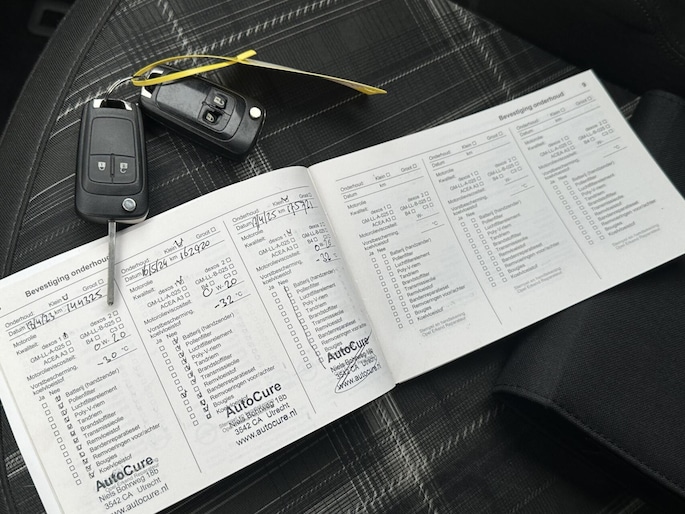 Bevestiging onderhoud
Onderhoud: Klein Groot
Datum 18/4/23 km 144325
Motorolie
Kwaliteit: dexos 1 dexos 2
GM-LL-A-025 GM-LL-B-025
ACEA A3 B4 C3
Motorolieviscositeit: 0 W- 20
Vorstbescherming
koelvloeistof: -30 °C
Ja Nee
Batterij (handzender)
Pollenfilter
Luchtfilterelement
Poly-V-riem
Tandriem
Brandstoffilter
Transmissieolie
Remvloeistof
Bandenreparatieset
Remvoeringen voor/achter
Bougies
Koelvloeistof
AutoCure
Niels Bohrweg 18b
3542 CA Utrecht
www.autocure.nl
Onderhoud: Klein Groot
Datum km 162920
Motorolie
Kwaliteit: dexos 1 dexos 2
GM-LL-A-025 GM-LL-B-025
ACEA A3 B4 C3
Motorolieviscositeit: 0 W- 20
Vorstbescherming
koelvloeistof: -32 °C
Ja Nee
Batterij (handzender)
Pollenfilter
Luchtfilterelement
Poly-V-riem
Tandriem
Brandstoffilter
Transmissieolie
Remvloeistof
Bandenreparatieset
Remvoeringen voor/achter
Bougies
AutoCure
Niels Bohrweg 18b
3542 CA Utrecht
www.autocure.nl
Onderhoud: Klein Groot
Datum km
Motorolie
Kwaliteit: dexos 1 dexos 2
GM-LL-A-025 GM-LL-B-025
ACEA A3 B4 C3
Motorolieviscositeit: W-
Vorstbescherming
koelvloeistof: -32 °C
Ja Nee
Batterij (handzender)
Pollenfilter
Luchtfilterelement
Poly-V-riem
Tandriem
Brandstoffilter
Transmissieolie
Remvloeistof
Bandenreparatieset
Remvoeringen voor/achter
Bougies
AutoCure
Niels Bohrweg 18b
3542 CA Utrecht
www.autocure.nl
Bevestiging onderhoud
Onderhoud: Klein Groot
Datum km
Motorolie
Kwaliteit: dexos 1 dexos 2
GM-LL-A-025 GM-LL-B-025
ACEA A3 B4 C3
Motorolieviscositeit: W-
Vorstbescherming
koelvloeistof: °C
Ja Nee
Batterij (handzender)
Pollenfilter
Luchtfilterelement
Poly-V-riem
Tandriem
Brandstoffilter
Transmissieolie
Remvloeistof
Bandenreparatieset
Remvoeringen voor/achter
Bougies
Koelvloeistof
Onderhoud: Klein Groot
Datum km
Motorolie
Kwaliteit: dexos 1 dexos 2
GM-LL-A-025 GM-LL-B-025
ACEA A3 B4 C3
Motorolieviscositeit: W-
Vorstbescherming
koelvloeistof: °C
Ja Nee
Batterij (handzender)
Pollenfilter
Luchtfilterelement
Poly-V-riem
Tandriem
Brandstoffilter
Transmissieolie
Remvloeistof
Bandenreparatieset
Remvoeringen voor/achter
Bougies
Koelvloeistof
Onderhoud: Klein Groot
Datum km
Motorolie
Kwaliteit: dexos 1 dexos 2
GM-LL-A-025 GM-LL-B-025
ACEA A3 B4 C3
Motorolieviscositeit: W-
Vorstbescherming
koelvloeistof: °C
Ja Nee
Batterij (handzender)
Pollenfilter
Luchtfilterelement
Poly-V-riem
Tandriem
Brandstoffilter
Transmissieolie
Remvloeistof
Bandenreparatieset
Remvoeringen voor/achter
Bougies
Koelvloeistof